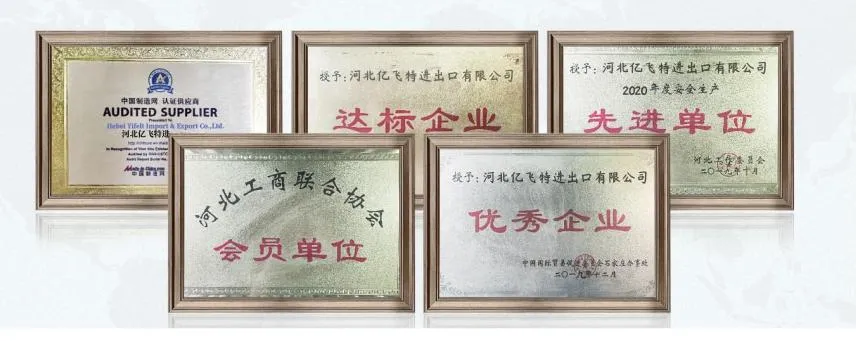 中国制造网 认证供应商
AUDITED SUPPLIER
Presented To
Hebei Yifeit Import & Export Co.,Ltd.
河北亿飞特进
Made-in-China.com
中国制造网
授予:河北亿飞特进出口有限公司
达标企业
授予:河北亿飞特进出口有限公司
2020年度安全生产
先进单位
二〇一九年十月
河北工商联合协会
会员单位
授予:河北亿飞特进出口有限公司
优秀企业
中国国际贸易促进委员会石家庄办事处
二〇一九年十二月